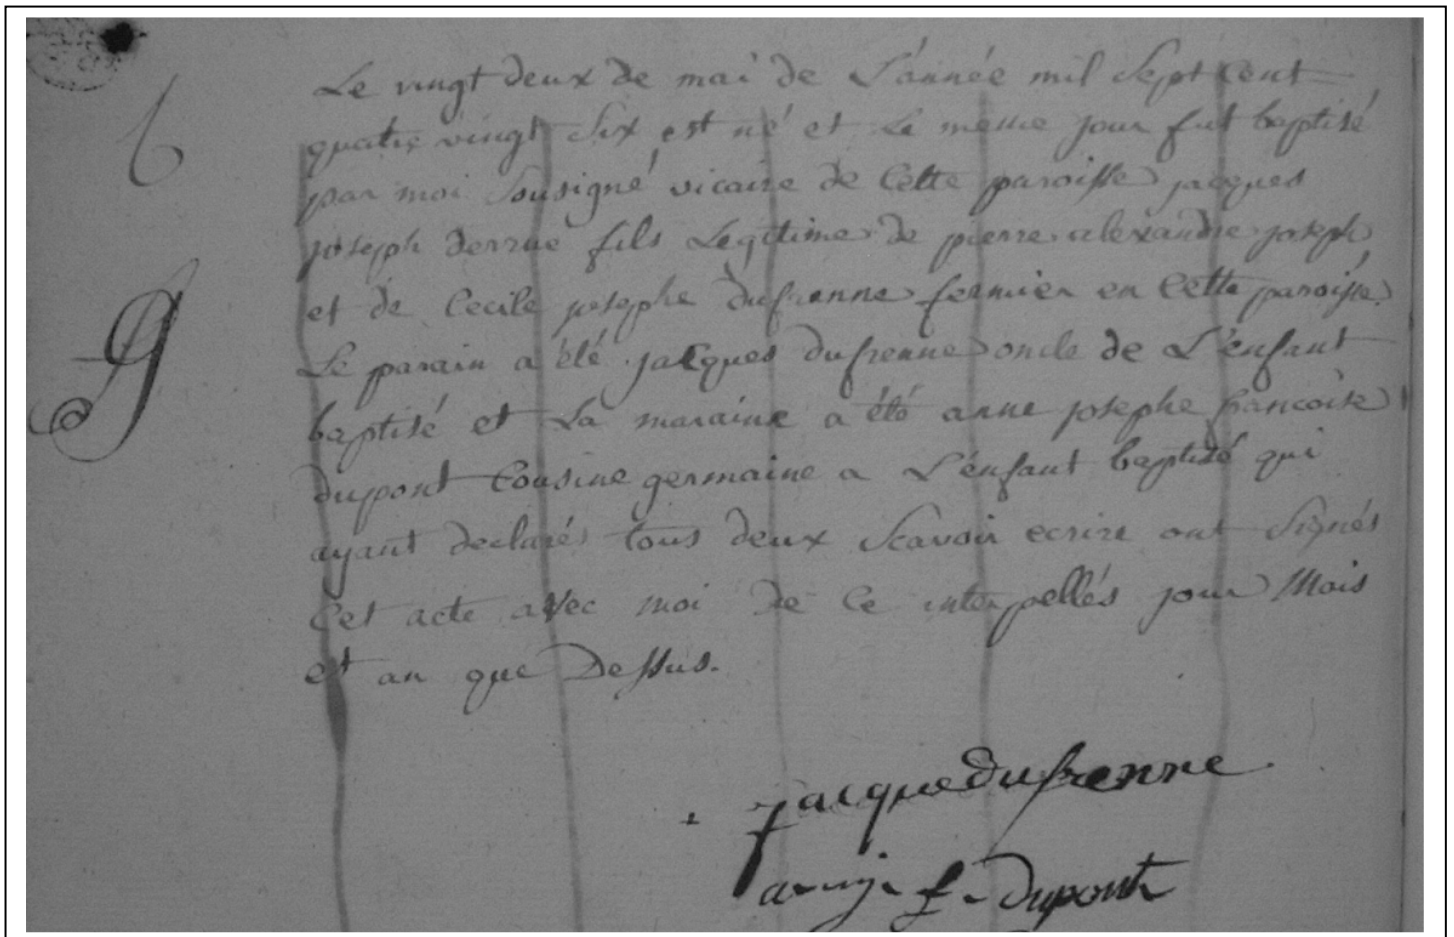 6
Le vingt deux de mai de L'année mil Sept Cent
quatre vingt Six est né et Le meme jour fut baptisé
par moi Sousigné vicaire de Cette paroisse jacques
joseph derrue fils Legitime de pierre alexandre joseph
et de Cecile josephe dufrenne fermier en Cette paroisse.
Le parain a été jacques dufrenne oncle de L'enfant
baptisé et La maraine a été anne josephe francoise
dupont Cousine germaine a L'enfant baptisé qui
ayant declarés tous deux Scavoir ecrire ont Signés
Cet acte avec moi de Ce interpellés jour Mois
et an que Dessus.
jacque dufrenne
f. dupont